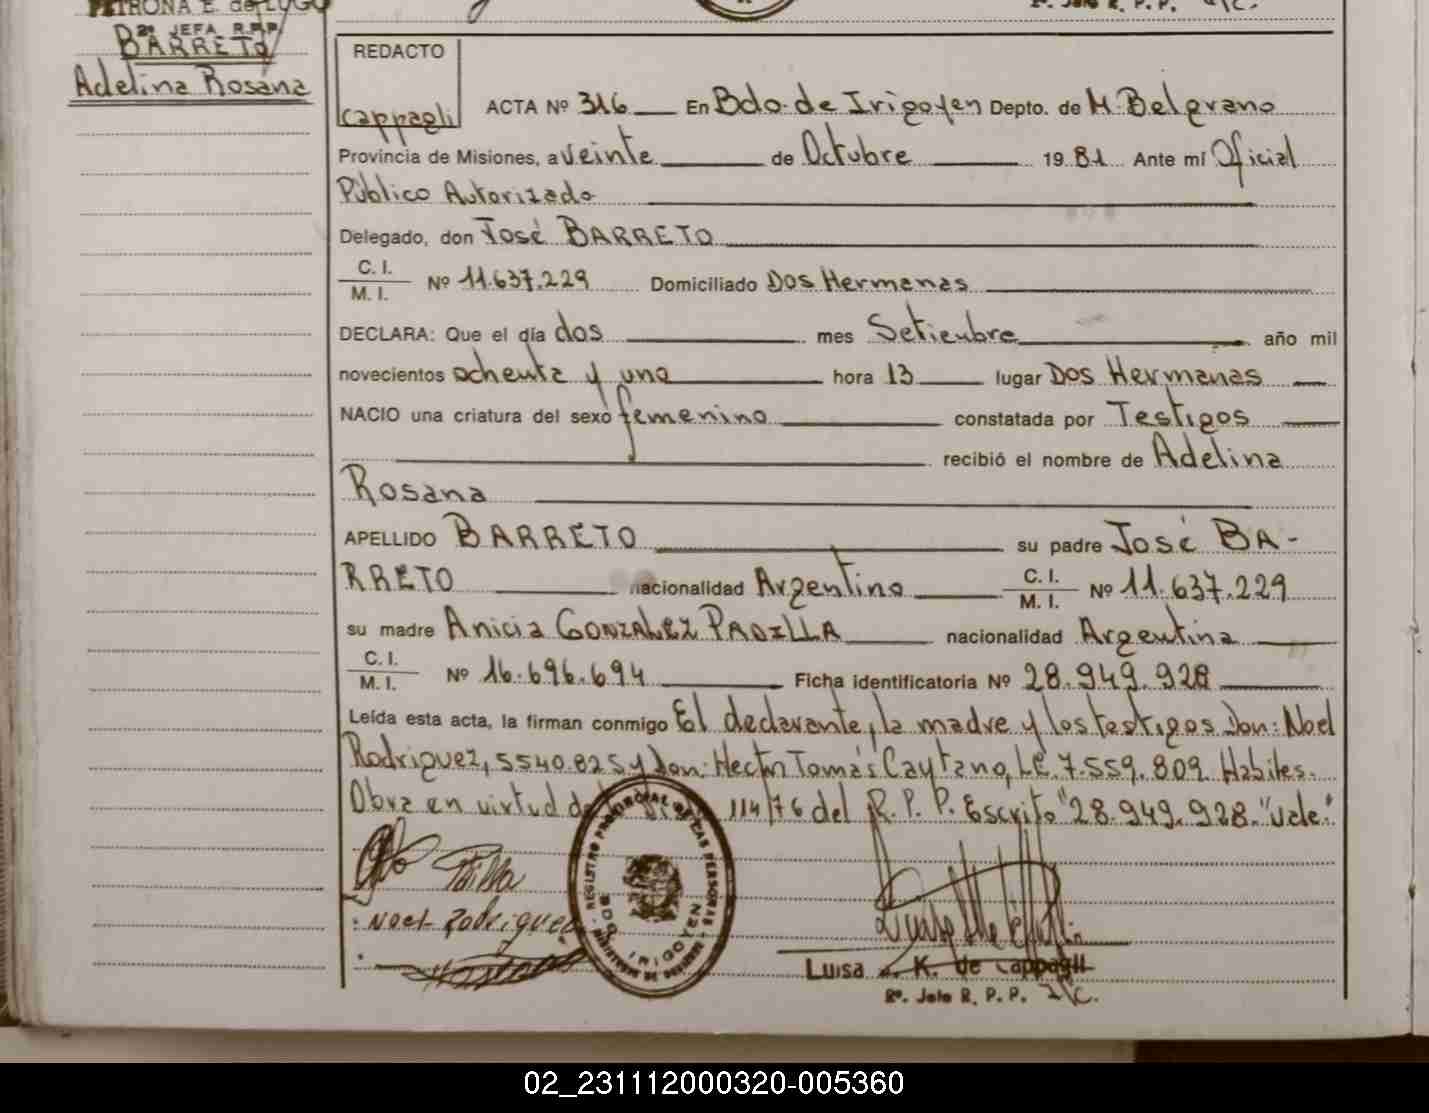 PETRONA E. de LUGO
2ª JEFA R.P.P.
BARRETO
Adelina Rosana
2º. Jefe R. P. P. A/C.
REDACTO
Cappagli
ACTA Nº 316 En Bdo. de Irigoyen Depto. de M. Belgrano
Provincia de Misiones, a veinte de Octubre 19 81 Ante mí Oficial
Público Autorizado
Delegado, don José BARRETO
C. I.
M. I. Nº 11.637.229 Domiciliado Dos Hermanas
DECLARA: Que el día dos mes Setienbre año mil
novecientos ochenta y uno hora 13 lugar Dos Hermanas
NACIO una criatura del sexo femenino constatada por Testigos
recibió el nombre de Adelina
Rosana
APELLIDO BARRETO su padre José BA-
RRETO nacionalidad Argentino C. I. M. I. Nº 11.637.229
su madre Anicia GONZALEZ PADILLA nacionalidad Argentina
C. I.
M. I. Nº 16.696.694 Ficha identificatoria Nº 28.949.928
Leída esta acta, la firman conmigo El declarante, la madre y los testigos Don: Noel
Rodriguez, 5540.825 y Don: Hector Tomás Caytano, LE. 7.559.809. Habiles.
Obra en virtud de 114/76 del R. P. P. Escrito "28.949.928." Vale."
Padilla
Noel Rodriguez
REGISTRO PROVINCIAL DE LAS PERSONAS
BDO. IRIGOYEN
Luisa K. de Cappagli
2º. Jefe R. P. P. A/C.
02_231112000320-005360